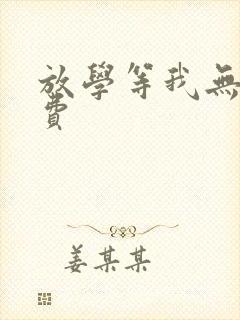 放學等我無
費
姜某某